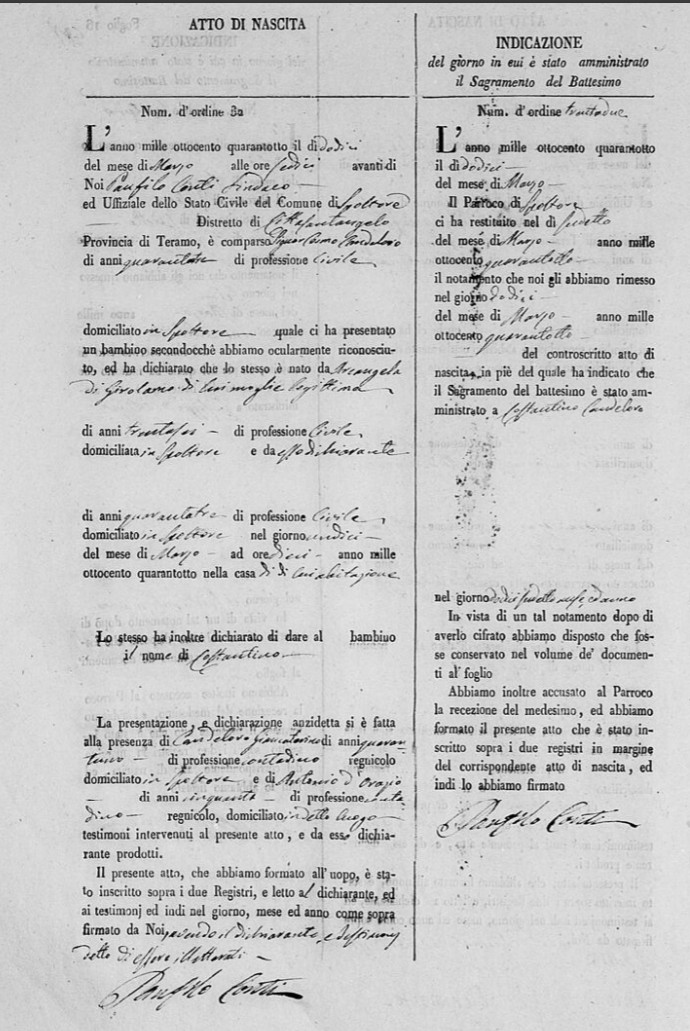 ATTO DI NASCITA
Num. d'ordine 32
L'anno mille ottocento quarantotto il dì dodici
del mese di Marzo alle ore sedici avanti di
Noi Panfilo Conti Sindaco
ed Uffiziale dello Stato Civile del Comune di Spoltore
Distretto di Cittasantangelo
Provincia di Teramo, è comparso Candeloro
di anni quarantatre di professione Civile
domiciliato in Spoltore quale ci ha presentato
un bambino secondocchè abbiamo ocularmente riconosciu-
to, ed ha dichiarato che lo stesso è nato da Arcangela
di Girolamo di lui moglie legittima
di anni trentasei di professione Civile
domiciliata in Spoltore e da esso dichiarante
di anni quarantatre di professione Civile
domiciliato in Spoltore nel giorno undici
del mese di Marzo ad ore dieci anno mille
ottocento quarantotto nella casa di di lui abitazione
Lo stesso ha inoltre dichiarato di dare al bambino
il nome di Costantino
La presentazione, e dichiarazione anzidetta si è fatta
alla presenza di Candeloro di anni quaran-
tuno di professione contadino regnicolo
domiciliato in Spoltore e di Antonio d'Orazio
di anni cinquanta di professione conta
dino regnicolo, domiciliato in detto luogo
testimoni intervenuti al presente atto, e da esso dichia-
rante prodotti.
Il presente atto, che abbiamo formato all'uopo, è sta-
to inscritto sopra i due Registri, e letto al dichiarante, ed
ai testimonj ed indi nel giorno, mese ed anno come sopra
firmato da Noi, avendo il dichiarante, e testimonj
detto di essere illetterati
Panfilo Conti
INDICAZIONE
del giorno in cui è stato amministrato
il Sagramento del Battesimo
Num. d'ordine trentadue
L'anno mille ottocento quarantotto
il dì dodici
del mese di Marzo
Il Parroco di Spoltore
ci ha restituito nel dì sudetto
del mese di Marzo anno mille
ottocento quarantotto
il notamento che noi gli abbiamo rimesso
nel giorno dodici
del mese di Marzo anno mille
ottocento quarantotto
del controscritto atto di
nascita, in piè del quale ha indicato che
il Sagramento del battesimo è stato am-
ministrato a Costantino Candeloro
nel giorno dodici sudetto mese ed anno
In vista di un tal notamento dopo di
averlo cifrato abbiamo disposto che fos-
se conservato nel volume de' documen-
ti al foglio
Abbiamo inoltre accusato al Parroco
la recezione del medesimo, ed abbiamo
formato il presente atto che è stato in-
scritto sopra i due registri in margine
del corrispondente atto di nascita, ed
indi lo abbiamo firmato
Panfilo Conti